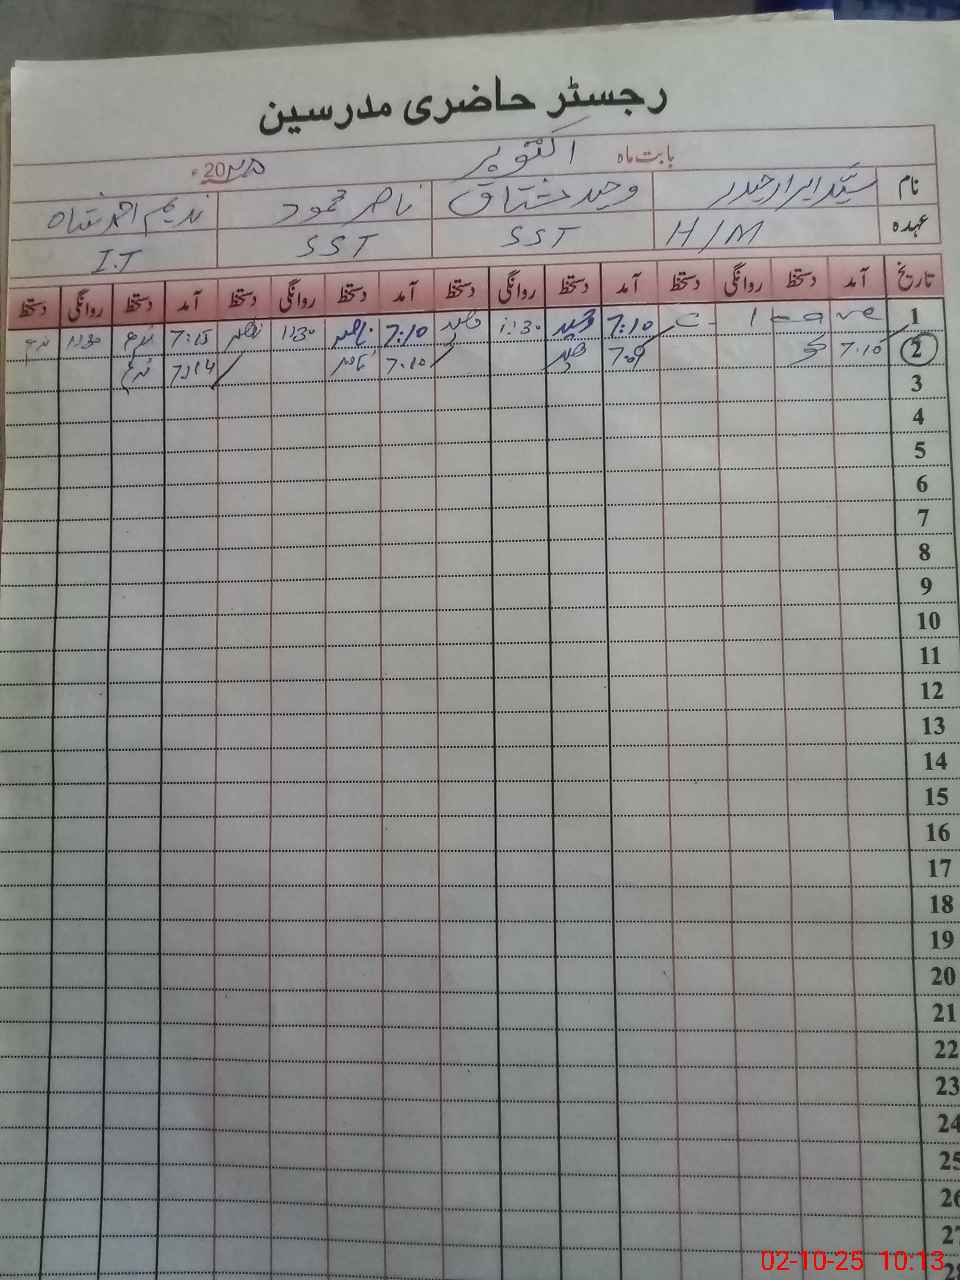 رجسٹر حاضری مدرسین
بابت ماہ اکتوبر 20۲۵ء
نام سید ابرار حیدر وحید مشتاق ناصر محمود ندیم احمد شاہ
عہدہ H/M SST SST I.T
تاریخ آمد دستخط روانگی دستخط آمد دستخط روانگی دستخط آمد دستخط روانگی دستخط آمد دستخط روانگی دستخط
1 C- leave 7:10 وحید 1:30 وحید 7:10 ناصر 1:30 ناصر 7:15 ندیم 1:30 ندیم
2 7.10 7.09 وحید 7.10 ناصر 7:14 ندیم
3
4
5
6
7
8
9
10
11
12
13
14
15
16
17
18
19
20
21
22
23
24
25
26
27
28
02-10-25 10:13